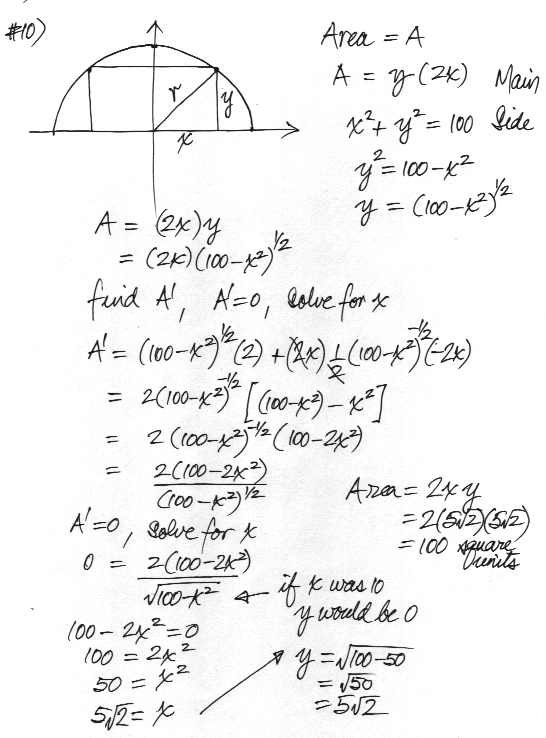 #10)
r
y
x
Area = A
A = y(2x) Main
x² + y² = 100 Side
y² = 100 - x²
y = (100 - x²)^1/2
A = (2x)y
= (2x)(100 - x²)^1/2
find A', A'=0, solve for x
A' = (100 - x²)^1/2 (2) + (2x) 1/2 (100 - x²)^-1/2 (-2x)
= 2(100 - x²)^-1/2 [(100 - x²) - x²]
= 2(100 - x²)^-1/2 (100 - 2x²)
= 2(100 - 2x²) / (100 - x²)^1/2
A'=0, solve for x
0 = 2(100 - 2x²) / √100 - x²
if x was 10
y would be 0
100 - 2x² = 0
100 = 2x²
50 = x²
5√2 = x
y = √100 - 50
= √50
= 5√2
Area = 2xy
= 2(5√2)(5√2)
= 100 square
units